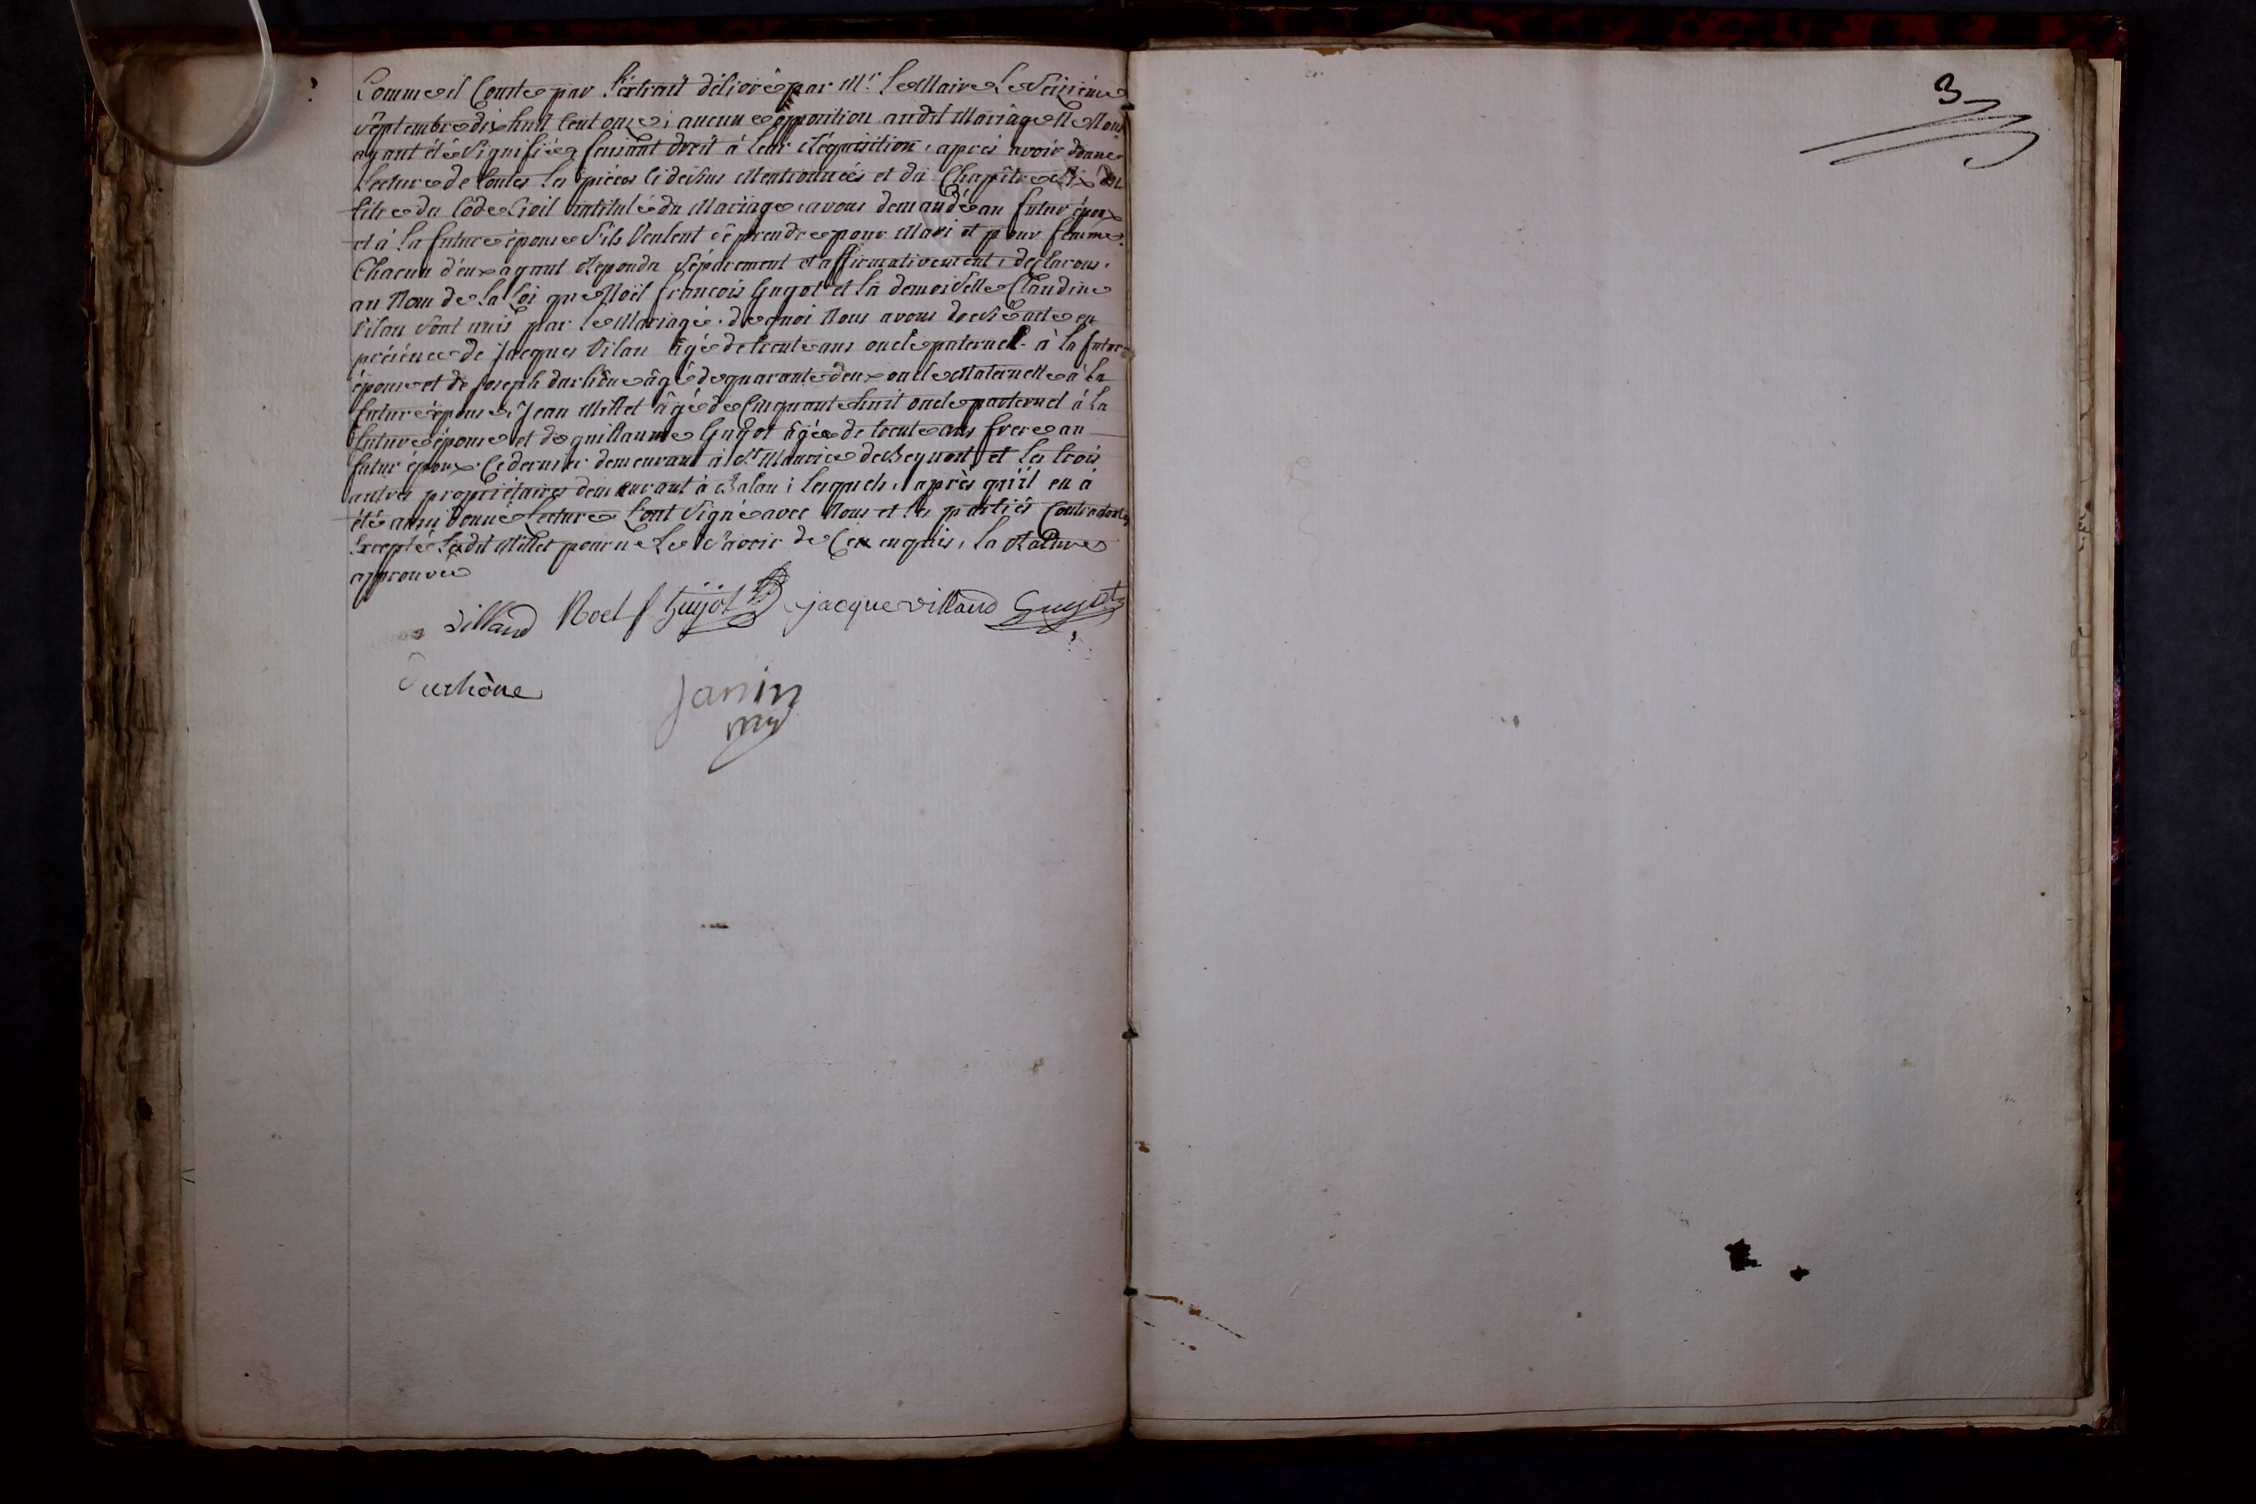 Comme il Conste par l'extrait délivré par Mr. le Maire Le Seizieme
séptembre dix huit Cent onze; aucune opposition audit Mariage Ne Nous
ayant été Signifiée faisant droit à leur Réquisition, après avoir donné
Lecture de toutes les pièces Ci dessus Mentionnées et du Chapitre du
titre du Côde Civil intitulé du Mariage, avons demandé au futur époux
et à la future épouse S'ils Veulent se prendre pour Mari et pour femme.
Chacun d'eux ayant Repondu Séparement et affirmativement, declarons,
au Nom de la Loi que Noël françois Guyot et la demoiselle Claudine
Vilan Sont unis par le Mariage. de quoi Nous avons dressé acte en
présence de Jacques Vilan âgé de trente ans oncle paternel à la future
épouse et de Joseph durhône âgé de quarante deux oncle Maternelle à la
future épouse, Jean Millet âgé de Cinquante huit oncle paternel à la
future épouse et de guillaume Guyot âgée de trente ans frere au
futur époux. Ce dernier demeurant à St. Maurice de Beynost et les trois
autres propriétaires demeurant à Balan; lesquels, après qu'il en a
été aussi donné Lecture L'ont Signé avec Nous et les partiés Contractantes
Excepté Ledit Millet pour ne Le Savoir de Ce enquis, la Rature
approuvée
Villand Noel f Guyot jacque villand Guyot
durhône Janin
my
3